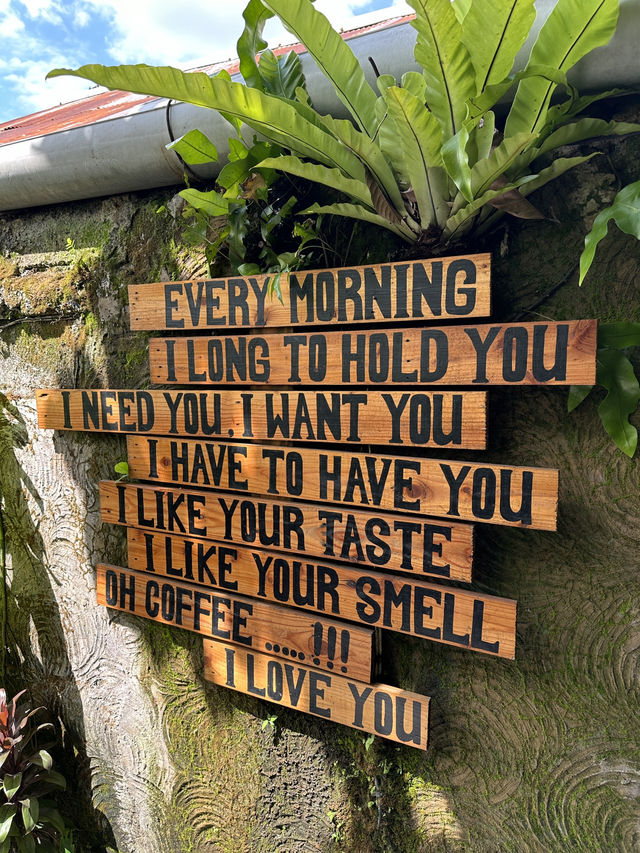 EVERY MORNING
I LONG TO HOLD YOU
I NEED YOU, I WANT YOU
I HAVE TO HAVE YOU
I LIKE YOUR TASTE
I LIKE YOUR SMELL
OH COFFEE .....!!!
I LOVE YOU